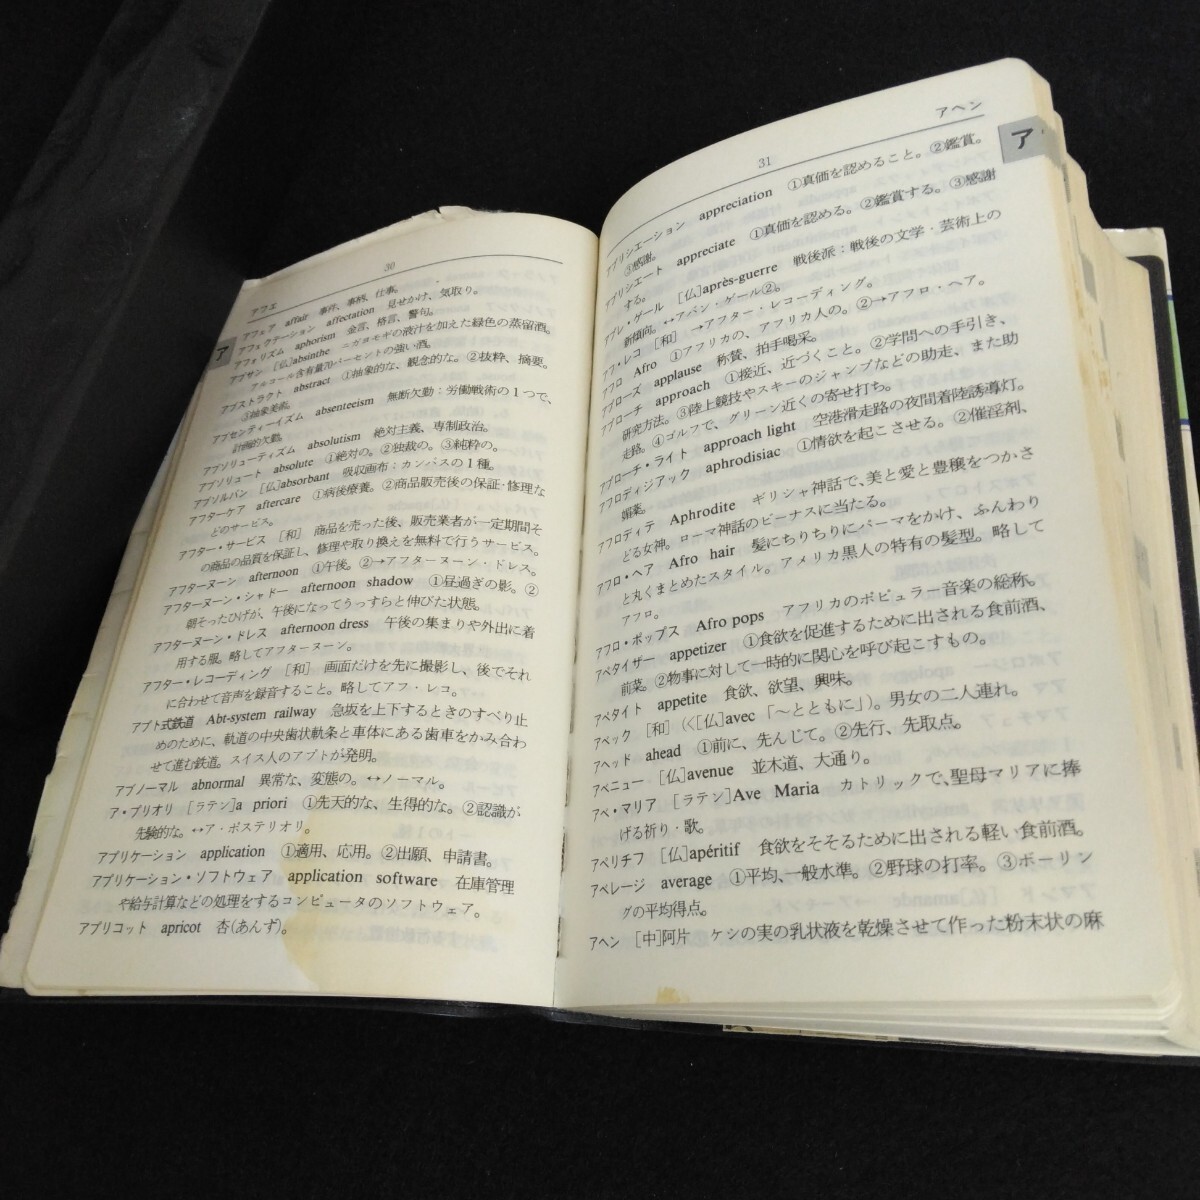 30
アフエ
ア
アフェア affair 事件、事柄、仕事。
アフェクテーション affectation 見せかけ、気取り。
アフォリズム aphorism 金言、格言、警句。
アブサン [仏]absinthe ニガヨモギの液汁を加えた緑色の蒸留酒。
アルコール含有量70パーセントの強い酒。
アブストラクト abstract ①抽象的な、観念的な。②抜粋、摘要。
③抽象美術。
アブセンティーイズム absenteeism 無断欠勤：労働戦術の１つで、
計画的欠勤。
アブソリューティズム absolutism 絶対主義、専制政治。
アブソリュート absolute ①絶対の。②独裁の。③純粋の。
アブソルバン [仏]absorbant 吸収画布：カンバスの１種。
アフターケア aftercare ①病後療養。②商品販売後の保証・修理な
どのサービス。
アフター・サービス [和] 商品を売った後、販売業者が一定期間そ
の商品の品質を保証し、修理や取り換えを無料で行うサービス。
アフターヌーン afternoon ①午後。②→アフターヌーン・ドレス。
アフターヌーン・シャドー afternoon shadow ①昼過ぎの影。②
朝そったひげが、午後になってうっすらと伸びた状態。
アフターヌーン・ドレス afternoon dress 午後の集まりや外出に着
用する服。略してアフターヌーン。
アフター・レコーディング [和] 画面だけを先に撮影し、後でそれ
に合わせて音声を録音すること。略してアフ・レコ。
アプト式鉄道 Abt-system railway 急坂を上下するときのすべり止
めのために、軌道の中央歯状軌条と車体にある歯車をかみ合わ
せて進む鉄道。スイス人のアプトが発明。
アブノーマル abnormal 異常な、変態の。↔ノーマル。
ア・プリオリ [ラテン]a priori ①先天的な、生得的な。②認識が
先験的な。↔ア・ポステリオリ。
アプリケーション application ①適用、応用。②出願、申請書。
アプリケーション・ソフトウェア application software 在庫管理
や給与計算などの処理をするコンピュータのソフトウェア。
アプリコット apricot 杏(あんず)。
アヘン
31
ア
アプリシエーション appreciation ①真価を認めること。②鑑賞。
③感謝。
アプリシエート appreciate ①真価を認める。②鑑賞する。③感謝
する。
アプレ・ゲール [仏]après-guerre 戦後派：戦後の文学・芸術上の
新傾向。↔アバン・ゲール②。
アフ・レコ [和] →アフター・レコーディング。
アフロ Afro ①アフリカの、アフリカ人の。②→アフロ・ヘア。
アプローズ applause 称賛、拍手喝采。
アプローチ approach ①接近、近づくこと。②学問への手引き、
研究方法。③陸上競技やスキーのジャンプなどの助走、また助
走路。④ゴルフで、グリーン近くの寄せ打ち。
アプローチ・ライト approach light 空港滑走路の夜間着陸誘導灯。
アフロディジアック aphrodisiac ①情欲を起こさせる。②催淫剤、
媚薬。
アフロディテ Aphrodite ギリシャ神話で、美と愛と豊穣をつかさ
どる女神。ローマ神話のビーナスに当たる。
アフロ・ヘア Afro hair 髪にちりちりにパーマをかけ、ふんわり
と丸くまとめたスタイル。アメリカ黒人の特有の髪型。略して
アフロ。
アフロ・ポップス Afro pops アフリカのポピュラー音楽の総称。
アペタイザー appetizer ①食欲を促進するために出される食前酒、
前菜。②物事に対して一時的に関心を呼び起こすもの。
アペタイト appetite 食欲、欲望、興味。
アベック [和] (＜[仏]avec「～とともに」)。男女の二人連れ。
アヘッド ahead ①前に、先んじて。②先行、先取点。
アベニュー [仏]avenue 並木道、大通り。
アベ・マリア [ラテン]Ave Maria カトリックで、聖母マリアに捧
げる祈り・歌。
アペリチフ [仏]apéritif 食欲をそそるために出される軽い食前酒。
アベレージ average ①平均、一般水準。②野球の打率。③ボーリン
グの平均得点。
アヘン [中]阿片 ケシの実の乳状液を乾燥させて作った粉末状の麻